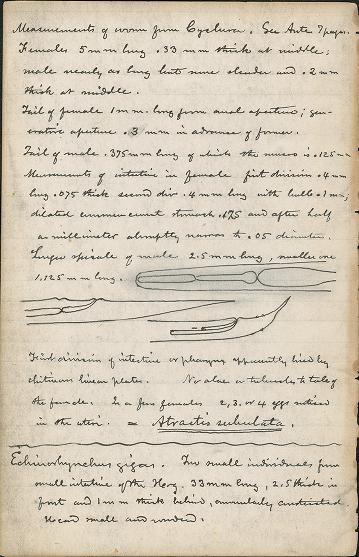 Measurements of worm from Cyclura. See Ante 7 pages.
Females 5 mm long .33 mm thick at middle;
male nearly as long but more slender and .2 mm
thick at middle.
Tail of female 1 mm. long from anal aperture; gen-
erative aperture .3 mm in advance of former.
Tail of male .375 mm long of which the mucro is .125 mm
Measurements of intestine in female first division .4 mm
long .075 thick second div. .4 mm long with bulb .1 mm;
dilated commencement stomach .175 and after half
a millimeter abruptly narrows to .05 diameter.
Larger spicule of male 2.5 mm long, smaller one
1.125 mm long.
First division of intestine or pharynx apparently lined by
chitinous linear plates. No alae or tubercles to tail of
the female. In a few females 2, 3, or 4 eggs noticed
in the uteri. = Atractis subulata.
Echinorhynchus gigas. Two small individuals from
small intestine of the Hog. 33 mm long, 2.5 thick in
front and 1 mm thick behind, annularly constricted
Head small and